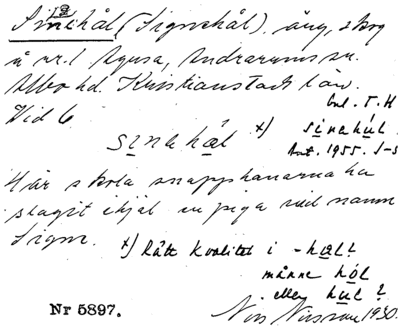 Sinnhål (Signehål). äng, skog
å nr. 1 Agusa, Andrarums sn.
Albo hd. Kristianstads län.
Vid 6
enl. I. H
sinahål x) sinahúl.
Ant. 1955. I-S
Här skola snapphanarna ha
slagit ihjäl en piga vid namn
Signe.
x) Rätt kvalitet i -hal?
månne hól
eller hul?
Nr 5897. Nils Nilsson 1930.